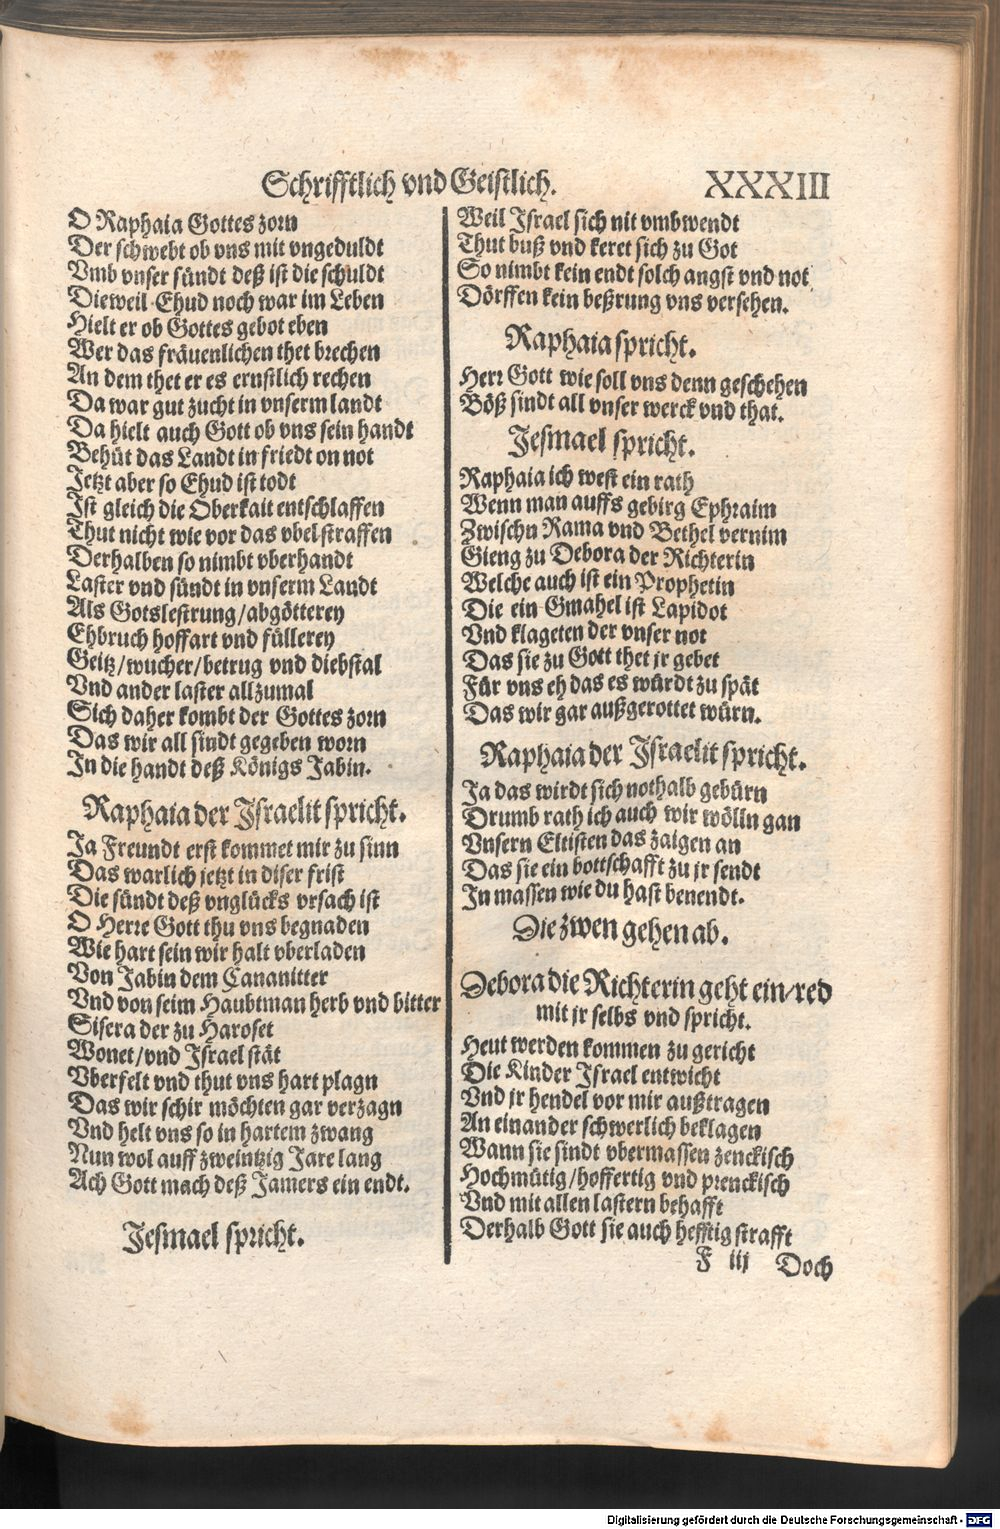 Schrifftlich vnd Geistlich. XXXIII
O Raphaia Gottes zorn
Der schwebt ob vns mit vngeduldt
Vmb vnser sündt deß ist die schuldt
Dieweil Ehud noch war im Leben
Hielt er ob Gottes gebot eben
Wer das fräuenlichen thet brechen
An dem thet er es ernstlich rechen
Da war gut zucht in vnserm landt
Da hielt auch Gott ob vns sein handt
Behüt das Landt in friedt on not
Jetzt aber so Ehud ist todt
Ist gleich die Oberkait entschlaffen
Thut nicht wie vor das vbel straffen
Derhalben so nimbt vberhandt
Laster vnd sündt in vnserm Landt
Als Gotslestrung/abgötterey
Ehbruch hoffart vnd füllerey
Geitz/wucher/betrug vnd diebstal
Vnd ander laster allzumal
Sich daher kombt der Gottes zorn
Das wir all sindt gegeben worn
In die handt deß Königs Jabin.
Raphaia der Israelit spricht.
Ja Freundt erst kommet mir zu sinn
Das warlich jetzt in diser frist
Die sündt deß vnglücks vrsach ist
O Herre Gott thu vns begnaden
Wie hart sein wir halt vberladen
Von Jabin dem Cananitter
Vnd von seim Haubtman herb vnd bitter
Sisera der zu Haroset
Wonet/vnd Israel stät
Vberfelt vnd thut vns hart plagn
Das wir schir möchten gar verzagn
Vnd helt vns so in hartem zwang
Nun wol auff zweintzig Jare lang
Ach Gott mach deß Jamers ein endt.
Jesmael spricht.
Weil Israel sich nit vmbwendt
Thut buß vnd keret sich zu Got
So nimbt kein endt solch angst vnd not
Dörffen kein beßrung vns versehen.
Raphaia spricht.
Herr Gott wie soll vns denn geschehen
Böß sindt all vnser werck vnd that.
Jesmael spricht.
Raphaia ich west ein rath
Wenn man auffs gebirg Ephraim
Zwischn Rama vnd Bethel vernim
Gieng zu Debora der Richterin
Welche auch ist ein Prophetin
Die ein Gmahel ist Lapidot
Vnd klageten der vnser not
Das sie zu Gott thet jr gebet
Für vns eh das es würdt zu spät
Das wir gar außgerottet würn.
Raphaia der Israelit spricht.
Ja das wirdt sich nothalb gebürn
Drumb rath ich auch wir wölln gan
Vnsern Eltisten das zaigen an
Das sie ein bottschafft zu jr sendt
In massen wie du hast benendt.
Die zwen gehen ab.
Debora die Richterin geht ein/red
mit jr selbs vnd spricht.
Heut werden kommen zu gericht
Die Kinder Israel entwicht
Vnd jr hendel vor mir außtragen
An einander schwerlich beklagen
Wann sie sindt vbermassen zenckisch
Hochmütig/hoffertig vnd prenckisch
Vnd mit allen lastern behafft
Derhalb Gott sie auch hefftig strafft
F iij Doch
Digitalisierung gefördert durch die Deutsche Forschungsgemeinschaft - DFG